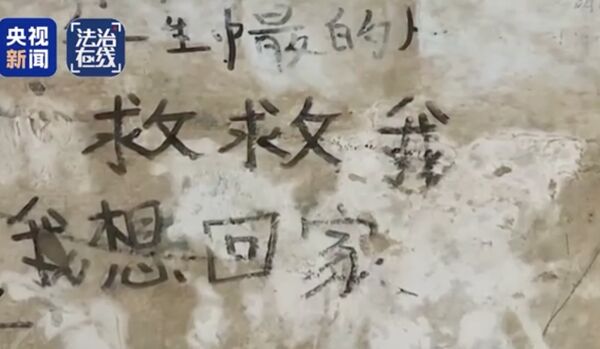 央视新闻
法治在线
生
最的
救救我
我想回家